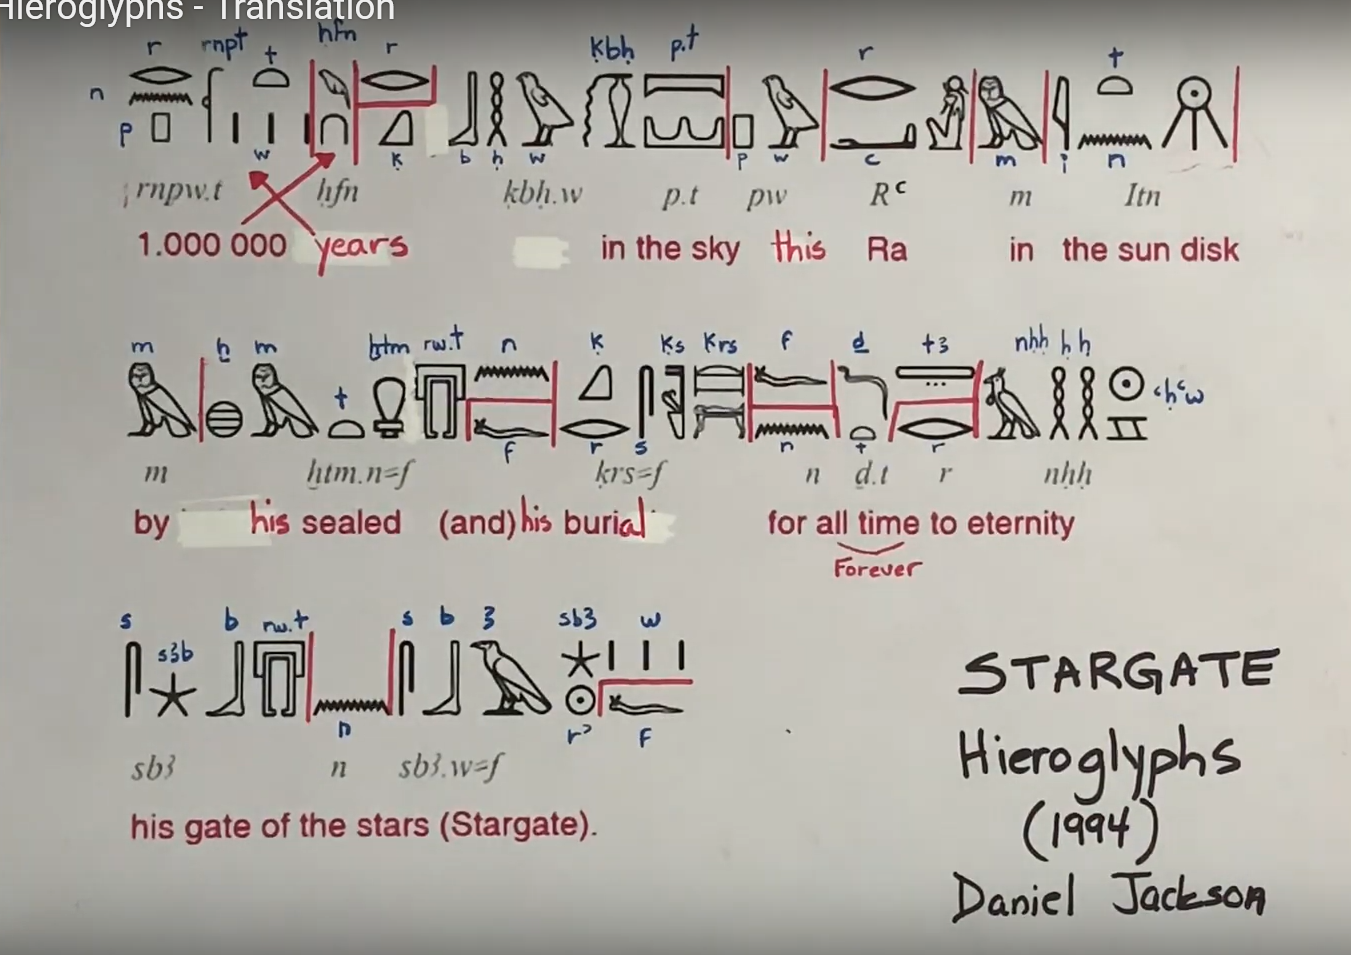 Hieroglyphs - Translation
r rnpt t ḥfn r ḳbḥ p.t r t
n
p w ḳ b ḥ w p w c m i n
rnpw.t ḥfn ḳbḥ.w p.t pw Rᶜ m Itn
1.000 000 years in the sky this Ra in the sun disk
m ḫ m t ḫtm rw.t n ḳ ḳs ḳrs f ḏ t3 nḥḥ ḥ ḥ ᶜḥᶜw
f r s n t r
m ḫtm.n=f ḳrs=f n ḏ.t r nḥḥ
by his sealed (and) his burial for all time to eternity
Forever
s s3b b rw.t s b 3 sb3 w
n rᶜ f
sb3 n sb3.w=f
his gate of the stars (Stargate).
STARGATE
Hieroglyphs
(1994)
Daniel Jackson